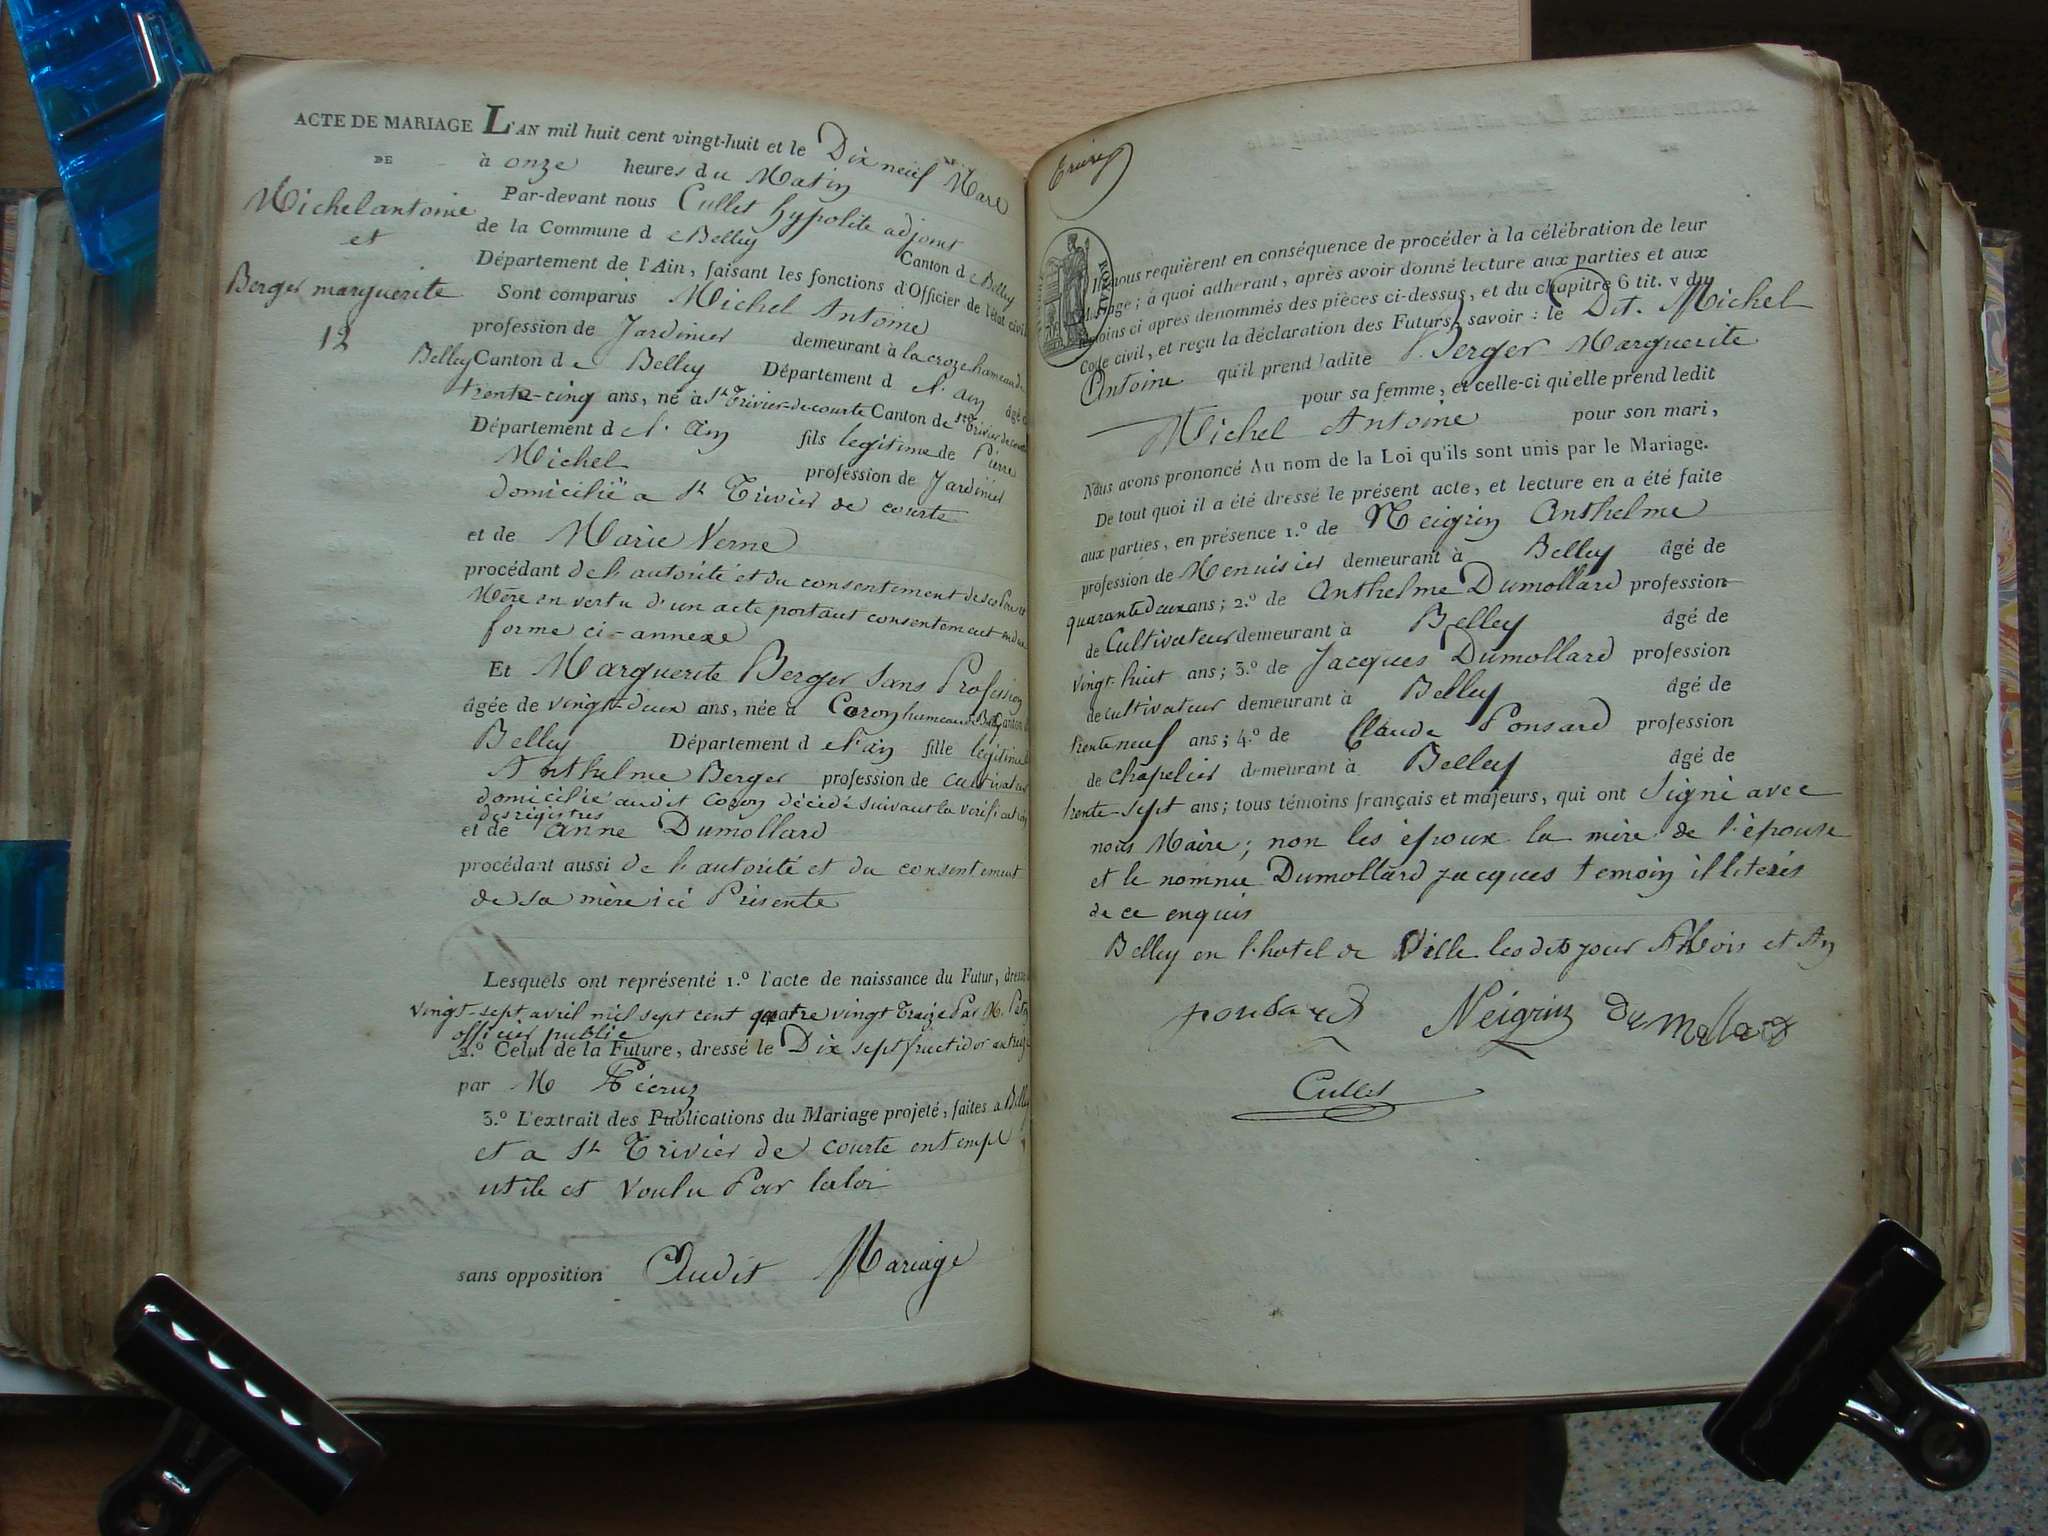 ACTE DE MARIAGE L'AN mil huit cent vingt-huit et le Dix neuf Mars
DE
à onze heures du Matin
Michel antoine
et
Berger marguerite
12
Par-devant nous Cullet hypolite adjoint
de la Commune de Belley Canton de Belley
Département de l'Ain, faisant les fonctions d'Officier de l'état civil
Sont comparus Michel Antoine
profession de Jardinier demeurant à la croze hameau de
Belley Canton de Belley Département de l'ain âgé de
trente-cinq ans, né à St Trivier-de-courte Canton de St Trivier de courte
Département de l'ain fils legitime de Pierre
Michel profession de Jardinier
domicilié a St Trivier de courte
et de Marie Verne
procédant de l'autorité et du consentement de ses Pere et
Mère en vertu d'un acte portant consentement en due
forme ci-annexe
Et Marguerite Berger Sans Profession
âgée de vingt-deux ans, née à Coron hameau de Belley Canton de
Belley Département de l'ain fille légitime
Anthelme Berger profession de cultivateur
domicilié audit coron décédé suivant la verification
des registres
et de anne Dumollard
procédant aussi de l'autorité et du consentement
de sa mère ici Présente
Lesquels ont représenté 1.º l'acte de naissance du Futur, dressé
vingt-sept avril mil sept cent quatre vingt Treize Par M.
officier public
2.º Celui de la Future, dressé le Dix sept fructidor an treize
par M
3.º L'extrait des Publications du Mariage projeté, faites a Belley
et a St Trivier de courte en temps
utile et voulu Par la loi
sans opposition Audit Mariage
ROYAL
Ils nous requièrent en conséquence de procéder à la célébration de leur
Mariage; à quoi adhérant, après avoir donné lecture aux parties et aux
témoins ci après dénommés des pièces ci-dessus, et du chapitre 6 tit. v du
Code civil, et reçu la déclaration des Futurs, savoir: le Dit. Michel
Antoine qu'il prend ladite Berger Marguerite
pour sa femme, et celle-ci qu'elle prend ledit
Michel Antoine pour son mari,
Nous avons prononcé Au nom de la Loi qu'ils sont unis par le Mariage.
De tout quoi il a été dressé le présent acte, et lecture en a été faite
aux parties, en présence 1.º de Neigrin Anthelme
profession de Menuisier demeurant à Belley âgé de
quarante deux ans; 2.º de Anthelme Dumollard profession
de Cultivateur demeurant à Belley âgé de
vingt-huit ans; 3.º de Jacques Dumollard profession
de cultivateur demeurant à Belley âgé de
trente neuf ans; 4.º de Claude Ponsard profession
de chapelier demeurant à Belley âgé de
trente-sept ans; tous témoins français et majeurs, qui ont Signé avec
nous Maire; non les époux la mère de l'épouse
et le nommé Dumollard jacques temoin illiterés
de ce enquis
Belley en l'hotel de Ville les dits jour Mois et An
ponsard Neigrin Dumollard
Cullet